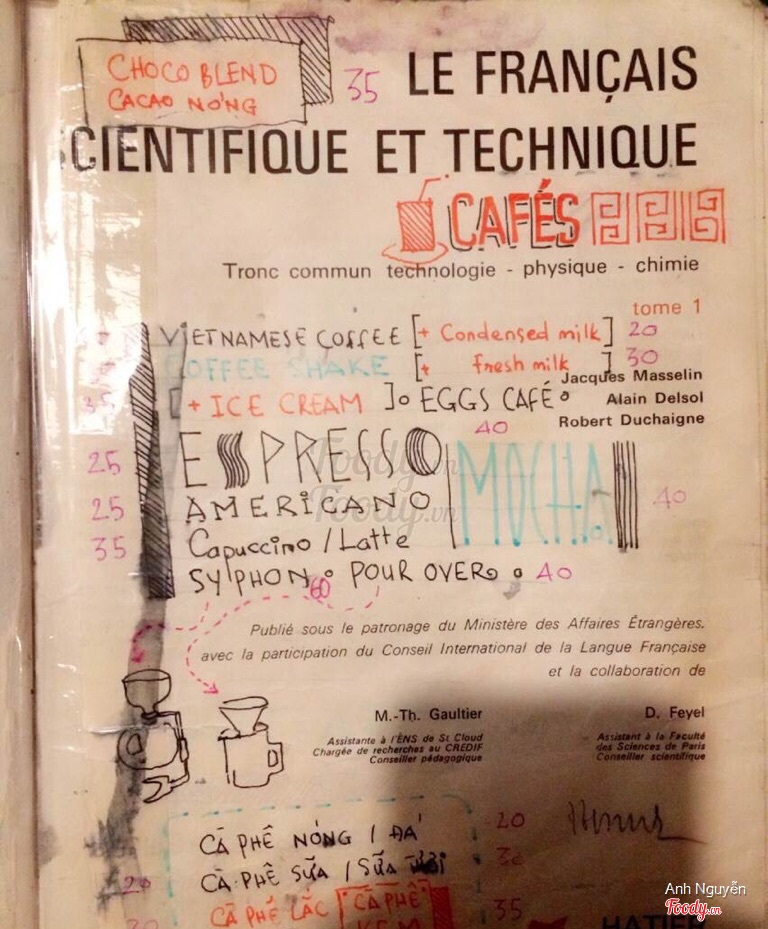 CHOCO BLEND
CACAO NÓNG
35
LE FRANÇAIS
SCIENTIFIQUE ET TECHNIQUE
CAFÉS
Tronc commun technologie - physique - chimie
tome 1
VIETNAMESE COFFEE [+ Condensed milk] 20
COFFEE SHAKE [+ fresh milk] 30
Jacques Masselin
35 [+ ICE CREAM] EGGS CAFÉ
Alain Delsol
Robert Duchaigne
40
25 ESPRESSO
MOCHA 40
25 AMERICANO
35 Capuccino / Latte
SYPHON 60 POUR OVER 40
Publié sous le patronage du Ministère des Affaires Étrangères,
avec la participation du Conseil International de la Langue Française
et la collaboration de
M.-Th. Gaultier
Assistante à l'ÉNS de St Cloud
Chargée de recherches au CREDIF
Conseiller pédagogique
D. Feyel
Assistant à la Faculté
des Sciences de Paris
Conseiller scientifique
CÀ PHÊ NÓNG / ĐÁ 20
CÀ PHÊ SỮA / SỮA 30
20
CÀ PHÊ LẮC CÀ PHÊ 35
30 KEM
HATIER
Foody.vn
Foody.vn
Anh Nguyễn
Foody.vn